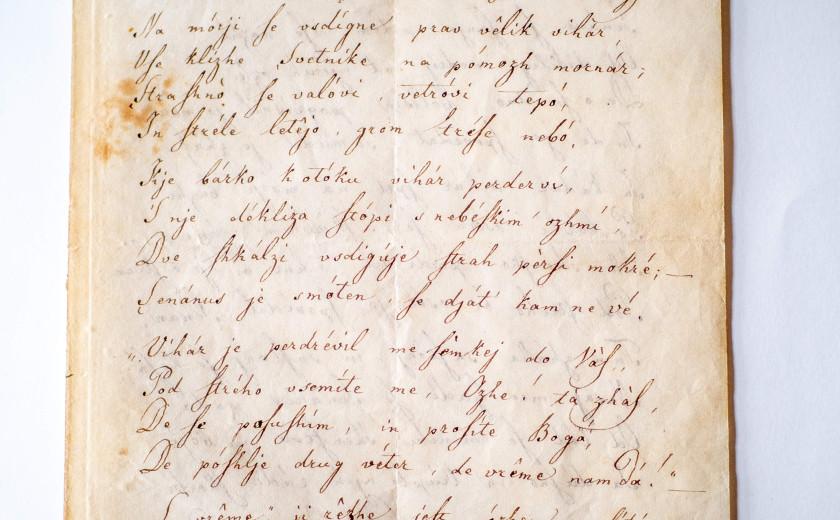 Na mórji ſe vsdígne prav vêlik vihár,
Vſe klízhe Svetnike na pómozh mornár;
Straſhnò ſe valóvi, vetróvi tepó,
In ſtréle letêjo, grom tréſe nebó.
Kje bárko k otóku vihár perderví,
S nje dékliza ſtópi s nebéſhkim' ozhmí,
Dve ſhkálzi vsdigúje ſtrah pèrſi mokré; —
Ŝenánus je smóten, ſe dját' kam ne vé.
„Vihár je perdrévil me ſèmkej do Vàſ,
Pod ſtrého vsemíte me, Ozhe! ta zhàſ,
De ſe poſuſhím, in proſíte Bogá,
De póſhlje drug véter, de vrême nam dá!" —
vrême" ji rêzhe